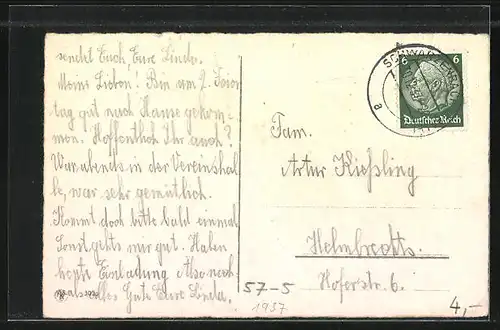 sendet Euch, Eure Linda.
Meine Lieben! Bin am 2. Feier
tag gut nach Hause gekom-
men. Hoffentlich Ihr auch?
War abends in der Vereinshal
le, war sehr gemütlich.
Kommt doch bitte bald einmal
Sonst gehts mir gut. Haben
heute Einladung. Also noch-
mals alles Gute Eure Linda.
SCHWARZENBACH
a
6 6
Deutsches Reich
Fam.
Artur Kießling
Helmbrechts.
Hoferstr. 6.
57-5
1937
4,-